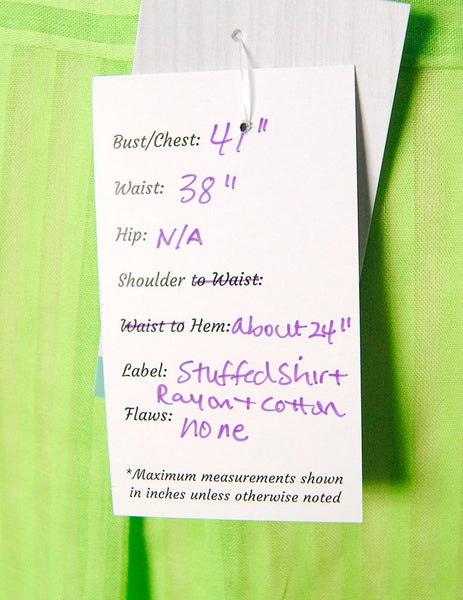 Bust/Chest: 41"
Waist: 38"
Hip: N/A
Shoulder to Waist:
Waist to Hem: about 24"
Label: Stuffed Shirt
Rayon + Cotton
Flaws: none
*Maximum measurements shown
in inches unless otherwise noted